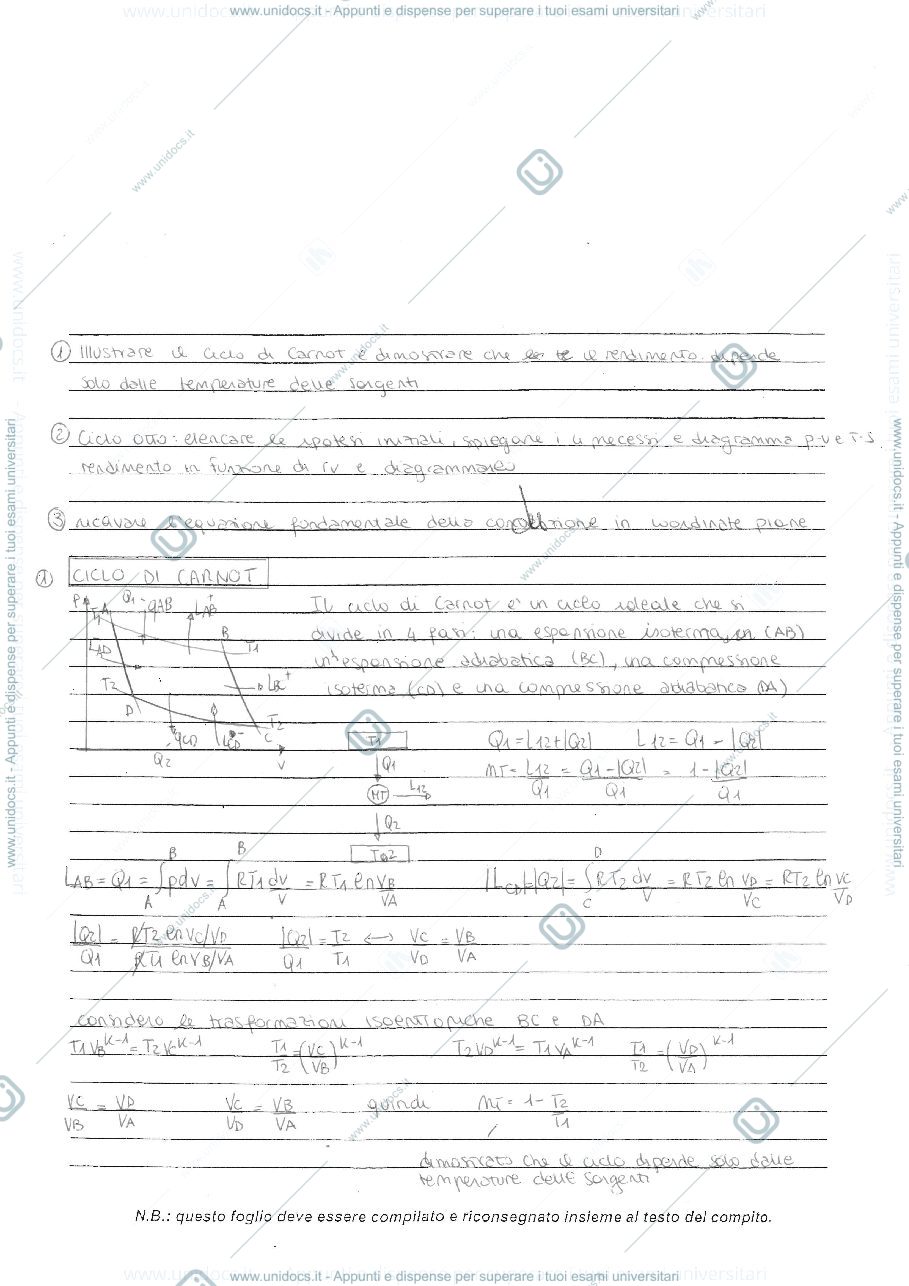 www.unidocs.it - Appunti e dispense per superare i tuoi esami universitari
① Illustrare il ciclo di Carnot e dimostrare che il rendimento dipende
solo dalle temperature delle sorgenti
② Ciclo Otto: elencare le ipotesi iniziali, spiegare i 4 processi e diagramma p-v e T-S
rendimento in funzione di rv e diagrammarlo
③ ricavare l'equazione fondamentale della conduzione in coordinate piane
① CICLO DI CARNOT
Il ciclo di Carnot è un ciclo ideale che si
divide in 4 fasi: una espansione isoterma (AB)
un'espansione adiabatica (BC), una compressione
isoterma (CD) e una compressione adiabatica (DA)
P T1 A Q1 qAB LAB+ B T1
LAD T2 D LBC+ T2 C
qCD LCD- Q2 V
T1
Q1
MT L12
Q2
T2
Q1=L12+|Q2| L12=Q1-|Q2|
ηT=L12/Q1 = (Q1-|Q2|)/Q1 = 1-|Q2|/Q1
LAB=Q1=∫_A^B pdv=∫_A^B RT1 dv/v = RT1 ln VB/VA |LCD|=|Q2|=∫_C^D RT2 dv/v = RT2 ln VD/VC = RT2 ln VC/VD
|Q2|/Q1 = RT2 ln VC/VD / RT1 ln VB/VA |Q2|/Q1 = T2/T1 <—> VC/VD = VB/VA
considero le trasformazioni isoentropiche BC e DA
T1VB^K-1 = T2VC^K-1 T1/T2=(VC/VB)^K-1 T2VD^K-1 = T1VA^K-1 T1/T2=(VD/VA)^K-1
VC/VB = VD/VA VC/VD = VB/VA quindi ηT = 1-T2/T1
dimostrato che il ciclo dipende solo dalle
temperature delle sorgenti
N.B.: questo foglio deve essere compilato e riconsegnato insieme al testo del compito.
www.unidocs.it - Appunti e dispense per superare i tuoi esami universitari